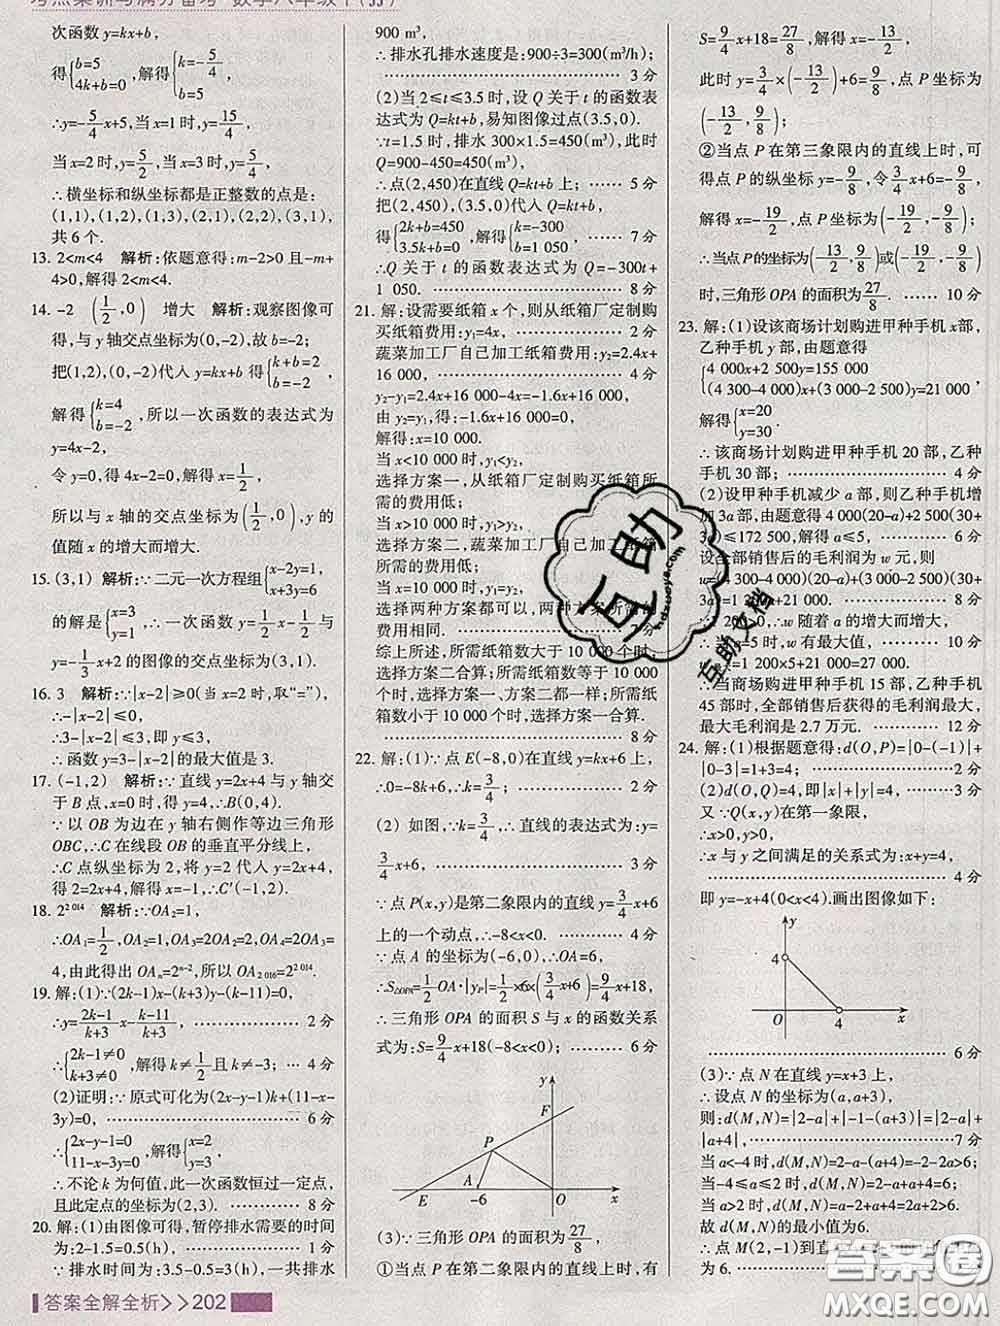 考点集训与满分备考 数学八年级下(JJ)
次函数 y=kx+b,
得{b=5 4k+b=0,解得{k=-5/4, b=5
∴y=-5/4x+5,当 x=1 时,y=15/4,
当 x=2 时,y=5/2,当 x=3 时,y=5/4,
∴横坐标和纵坐标都是正整数的点是:
(1,1),(1,2),(1,3),(2,1),(2,2),(3,1),
共 6 个.
13. 2<m<4 解析:依题意得:m-2>0 且-m+
4>0,解得 2<m<4.
14. -2 (1/2,0) 增大 解析:观察图像可
得,与 y 轴交点坐标为(0,-2),故 b=-2;
把(1,2),(0,-2)代入 y=kx+b 得{k+b=2 b=-2,
解得{k=4 b=-2,所以一次函数的表达式为
y=4x-2,
令 y=0,得 4x-2=0,解得 x=1/2,
所以与 x 轴的交点坐标为(1/2,0),y 的
值随 x 的增大而增大.
15. (3,1) 解析:∵二元一次方程组{x-2y=1, x+3y=6
的解是{x=3 y=1,∴一次函数 y=1/2x-1/2与
y=-1/3x+2 的图像的交点坐标为(3,1).
16. 3 解析:∵|x-2|≥0(当 x=2 时,取“=”),
∴-|x-2|≤0,
∴3-|x-2|≤3,即 y≤3,
∴函数 y=3-|x-2|的最大值是 3.
17. (-1,2) 解析:∵直线 y=2x+4 与 y 轴交
于 B 点,x=0 时,得 y=4,∴B(0,4).
∵以 OB 为边在 y 轴右侧作等边三角形
OBC,∴C 在线段 OB 的垂直平分线上,
∴C 点纵坐标为 2,将 y=2 代入 y=2x+4,
得 2=2x+4,解得 x=-1,∴C′(-1,2).
18. 2^2 014 解析:∵OA2=1,
∴OA1=1/2,OA2=1,OA3=2OA2=2,OA4=2OA3=
4,由此得出 OAn=2^n-2,所以 OA2 016=2^2 014.
19. 解:(1)∵(2k-1)x-(k+3)y-(k-11)=0,
∴y=2k-1/k+3 x-k-11/k+3, 2 分
∴{2k-1≠0 k+3≠0,解得 k≠1/2且 k≠-3; 4 分
(2)证明:∵原式可化为(2x-y-1)k+(11-x-
3y)=0, 6 分
∴{2x-y-1=0 11-x-3y=0,解得{x=2 y=3,
∴不论 k 为何值,此一次函数恒过一定点,
且此定点的坐标为(2,3). 8 分
20. 解:(1)由图像可得,暂停排水需要的时间
为:2-1.5=0.5(h), 1 分
∵排水时间为:3.5-0.5=3(h),一共排水
900 m³,
∴排水孔排水速度是:900÷3=300(m³/h);
3 分
(2)当 2≤t≤3.5 时,设 Q 关于 t 的函数表
达式为 Q=kt+b,易知图像过点(3.5,0).
∵t=1.5 时,排水 300×1.5=450(m³),此时
Q=900-450=450(m³),
∴点(2,450)在直线 Q=kt+b 上; 5 分
把(2,450),(3.5,0)代入 Q=kt+b,
得{2k+b=450 3.5k+b=0,解得{k=-300 b=1 050, 7 分
∴Q 关于 t 的函数表达式为 Q=-300t+
1 050. 8 分
21. 解:设需要纸箱 x 个,则从纸箱厂定制购
买纸箱费用:y1=4x, 2 分
蔬菜加工厂自己加工纸箱费用:y2=2.4x+
16 000, 4 分
y2-y1=2.4x+16 000-4x=-1.6x+16 000,
由 y2=y1,得:-1.6x+16 000=0,
解得:x=10 000.
当 x<10 000 时,y1<y2,
选择方案一,从纸箱厂定制购买纸箱所
需的费用低;
当 x>10 000 时,y1>y2,
选择方案二,蔬菜加工厂自己加工纸箱
所需的费用低;
当 x=10 000 时,y1=y2,
选择两种方案都可以,两种方案所需的
费用相同. 分
综上所述,所需纸箱数大于 10 000 个时,
选择方案二合算;所需纸箱数等于 10 000
个时,方案一、方案二都一样;所需纸
箱数小于 10 000 个时,选择方案一合算.
8 分
22. 解:(1)∵点 E(-8,0)在直线 y=kx+6 上,
∴0=-8k+6,∴k=3/4; 2 分
(2) 如图,∵k=3/4,∴直线的表达式为:y=
3/4x+6, 3 分
∵点 P(x,y)是第二象限内的直线 y=3/4x+6
上的一个动点,∴-8<x<0. 4 分
∵点 A 的坐标为(-6,0),∴OA=6,
∴S△OPA=1/2OA·|yP|=1/2×6×(3/4x+6)=9/4x+18,
∴三角形 OPA 的面积 S 与 x 的函数关系
式为:S=9/4x+18(-8<x<0); 6 分
y
F
P
A
E -6 O x
(3)∵三角形 OPA 的面积为27/8,
①当点 P 在第二象限内的直线上时,有
S=9/4x+18=27/8,解得 x=-13/2,
此时 y=3/4×(-13/2)+6=9/8,点 P 坐标为
(-13/2,9/8);
②当点 P 在第三象限内的直线上时,可
得点 P 的纵坐标 y=-9/8,令3/4x+6=-9/8,
解得 x=-19/2,点 P 坐标为(-19/2,-9/8);
∴当点 P 的坐标为(-13/2,9/8)或(-19/2,-9/8)
时,三角形 OPA 的面积为27/8. 10 分
23. 解:(1)设该商场计划购进甲种手机 x 部,
乙种手机 y 部,由题意得
{4 000x+2 500y=155 000 (4 300-4 000)x+(3 000-2 500)y=21 000,
解得{x=20 y=30.
∴该商场计划购进甲种手机 20 部,乙种
手机 30 部; 4 分
(2)设甲种手机减少 a 部,则乙种手机增
加 3a 部,由题意得 4 000(20-a)+2 500(30+
3a)≤172 500,解得 a≤5, 6 分
设全部销售后的毛利润为 w 元,则
w=(4 300-4 000)(20-a)+(3 000-2 500)(30+
3a)=1 200a+21 000. 8 分
∵1 200>0,∴w 随着 a 的增大而增大,
a=5 时,w 有最大值, 9 分
=1 200×5+21 000=27 000,
∴当商场购进甲种手机 15 部,乙种手机
45 部时,全部销售后获得的毛利润最大,
最大毛利润是 2.7 万元. 12 分
24. 解:(1)根据题意得:d(O,P)=|0-(-1)|+
|0-3|=1+3=4; 2 分
(2)d(O,Q)=4,即|x|+|y|=4, 3 分
又∵Q(x,y)在第一象限,
∴x>0,y>0,
∴x 与 y 之间满足的关系式为:x+y=4,
4 分
即 y=-x+4(0<x<4).画出图像如下:
y
4
O 4 x
6 分
(3)∵点 N 在直线 y=x+3 上,
∴设点 N 的坐标为(a,a+3),
则:d(M,N)=|2-a|+|-1-(a+3)|=|2-a|+
|a+4|, 7 分
当 a<-4 时,d(M,N)=2-a-(a+4)=-2-2a>6;
当-4≤a≤2 时,d(M,N)=2-a+(a+4)=6,
当 a>2 时,d(M,N)=a-2+a+4=2a+2>6.
故 d(M,N)的最小值为 6.
∴点 M(2,-1)到直
为 6.
答案全解全析>>202
互助
hdzuoye.com
互助文档
答案圈
MXQE.COM